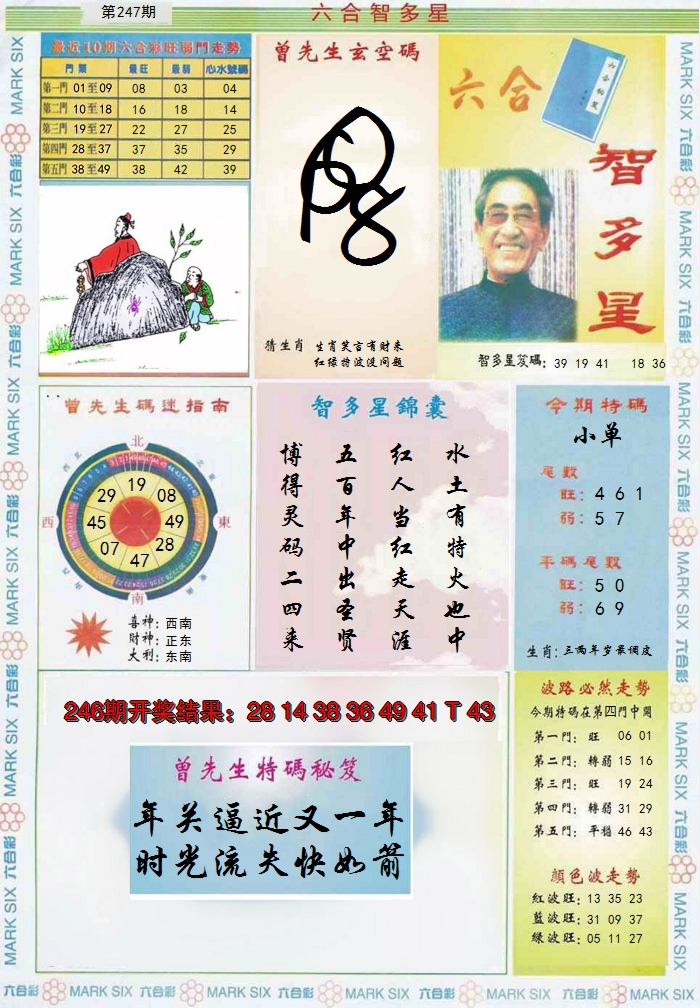 第247期
六合智多星
最近10期六合彩旺弱門走勢
門類 最旺 最弱 心水號碼
第一門 01至09 08 03 04
第二門 10至18 16 18 14
第三門 19至27 22 27 25
第四門 28至37 37 35 29
第五門 38至49 38 42 39
曾先生玄空碼
猜生肖 生肖笑言有财来
红绿特波没问题
六合
智多星
智多星笈碼：39 19 41 18 36
曾先生碼迷指南
北
西
東
南
19
08
49
28
47
07
45
29
喜神：西南
财神：正东
大利：东南
智多星錦囊
水土有特火也中
红人当红走天涯
五百年中出圣贤
博得灵码二四来
今期特碼
小单
尾數
旺：4 6 1
弱：5 7
平碼尾數
旺：5 0
弱：6 9
生肖：三两年岁最调皮
246期开奖结果：28 14 38 36 49 41 T 43
曾先生特碼秘笈
年关逼近又一年
时光流失快如箭
波路必然走勢
今期特碼在第四門中開
第一門：旺 06 01
第二門：轉弱 15 16
第三門：旺 19 24
第四門：轉弱 31 29
第五門：平穩 46 43
顏色波走勢
紅波旺：13 35 23
藍波旺：31 09 37
绿波旺：05 11 27
MARK SIX 六合彩